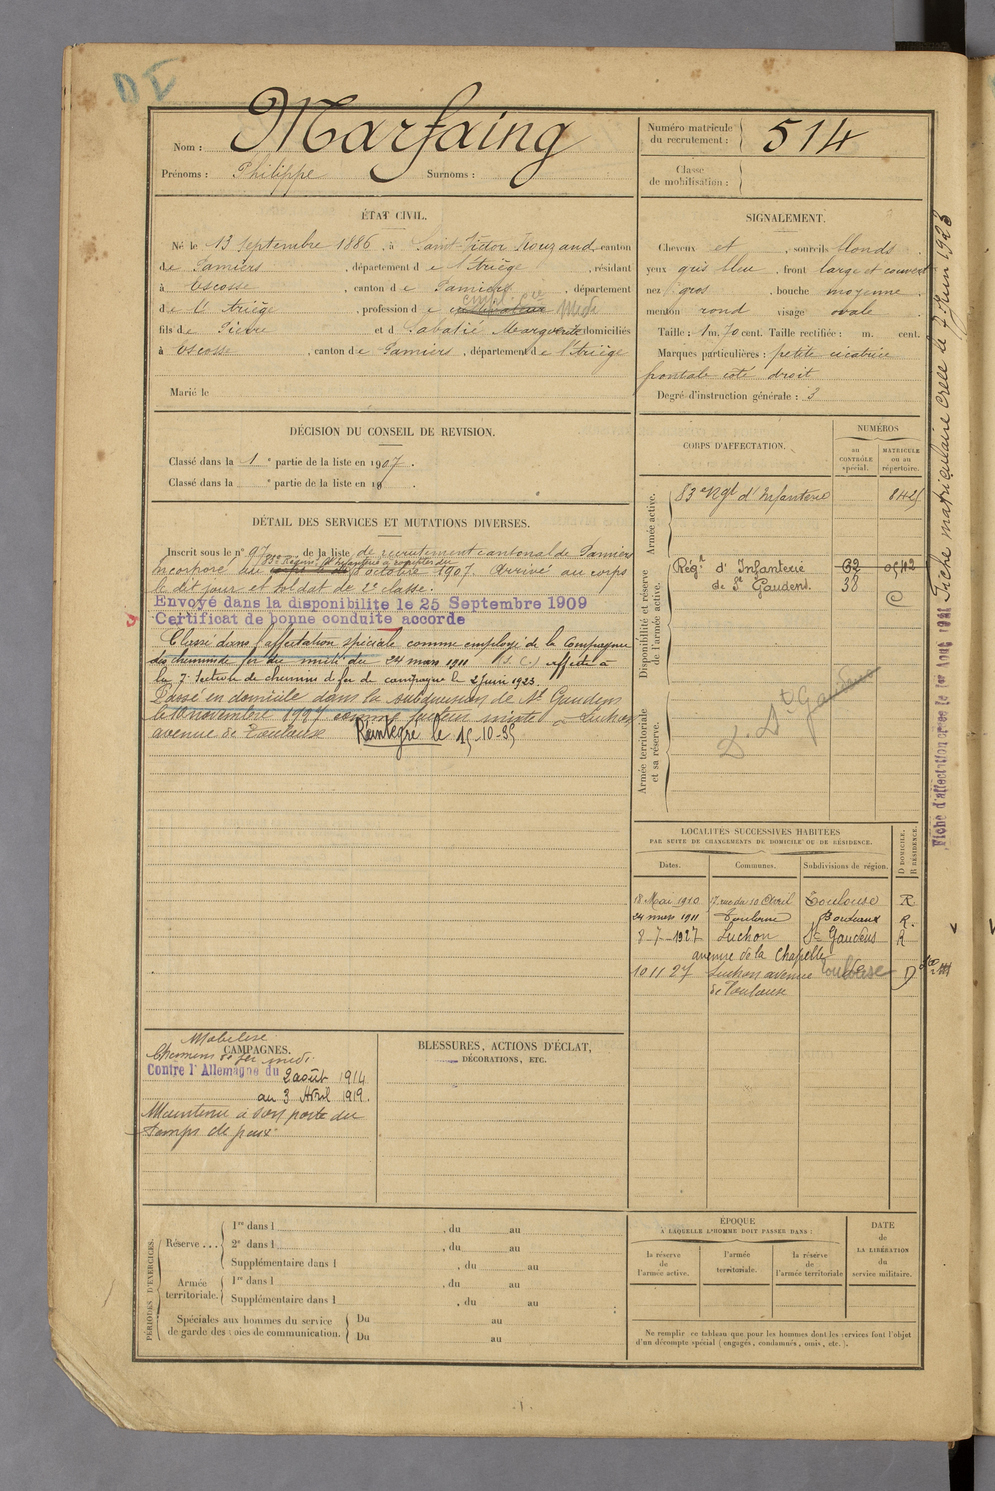 D
Nom : Marfaing
Prénoms : Philippe Surnoms :
Numéro matricule du recrutement : 514
Classe de mobilisation :
ÉTAT CIVIL.
Né le 13 Septembre 1886, à Saint-Victor Rouzaud, canton
de Pamiers, département de l'Ariège, résidant
à Escosse, canton de Pamiers, département
de l'Ariège, profession de cultivateur empl. Cie Midi
fils de Pierre et d Sabatié Marguerite domiciliés
à Escosse, canton de Pamiers, département de l'Ariège
Marié le
SIGNALEMENT.
Cheveux et, sourcils blonds
yeux gris bleu, front large et couvert
nez gros, bouche moyenne
menton rond visage ovale
Taille : 1 m. 70 cent. Taille rectifiée : m. cent.
Marques particulières : petite cicatrice
frontale coté droit
Degré d'instruction générale : 3
DÉCISION DU CONSEIL DE REVISION.
Classé dans la 1e partie de la liste en 1907.
Classé dans la e partie de la liste en 19
DÉTAIL DES SERVICES ET MUTATIONS DIVERSES.
Inscrit sous le n° 97 de la liste de recrutement cantonal de Pamiers
83e Régim. d'Infanterie à compter du
Incorporé au corps le dit 8 octobre 1907. Arrivé au corps
le dit jour et soldat de 2e classe.
Envoyé dans la disponibilite le 25 Septembre 1909
Certificat de bonne conduite accorde
Classé dans l'affectation spéciale comme employé de la Compagnie
des chemins de fer du midi du 24 mars 1911 (S.C.) affecté à
la 7e Section de chemins de fer de campagne le 2 Juin 1923.
Passé en domicile dans la subdivision de St Gaudens
le 10 novembre 1927 comme facteur mixte à Luchon
avenue de Toulouse Réintégré le 15-10-35
CORPS D'AFFECTATION.
NUMÉROS
au CONTRÔLE spécial.
MATRICULE ou au répertoire.
Armée active.
83e Rgt d'Infanterie
Disponibilité et réserve de l'armée active.
Régt d'Infanterie
de St Gaudens.
38
C
Armée territoriale et sa réserve.
D. St Gaudens
LOCALITÉS SUCCESSIVES HABITÉES
PAR SUITE DE CHANGEMENTS DE DOMICILE OU DE RÉSIDENCE.
D DOMICILE. R RÉSIDENCE.
Dates. Communes. Subdivisions de région.
18 Mai 1910 7 rue du 10 Avril Toulouse R
24 mars 1911 Toulouse Bordeaux R.
8-7-1927 Luchon St Gaudens R
avenue de la Chapelle
10 11 27 Luchon avenue Toulouse D
de Toulouse
Mobilisé
Chemins de fer midi.
CAMPAGNES.
Contre l'Allemagne du 2 août 1914
au 3 Avril 1919.
Maintenu à son poste du
temps de paix
BLESSURES, ACTIONS D'ÉCLAT,
DÉCORATIONS, ETC.
PÉRIODES D'EXERCICES.
Réserve ...
1re dans l , du au
2e dans l , du au
Supplémentaire dans l , du au
Armée territoriale.
1re dans l , du au
Supplémentaire dans l , du au
Spéciales aux hommes du service
de garde des voies de communication.
Du au
Du au
ÉPOQUE
À LAQUELLE L'HOMME DOIT PASSER DANS :
la réserve de l'armée active.
l'armée territoriale.
la réserve de l'armée territoriale
DATE de LA LIBÉRATION du service militaire.
Ne remplir ce tableau que pour les hommes dont les services font l'objet
d'un décompte spécial (engagés, condamnés, omis, etc.).
Fiche d'affectation créée le 1er Août 1921
Fiche matriculaire créée le 7 Juin 1923